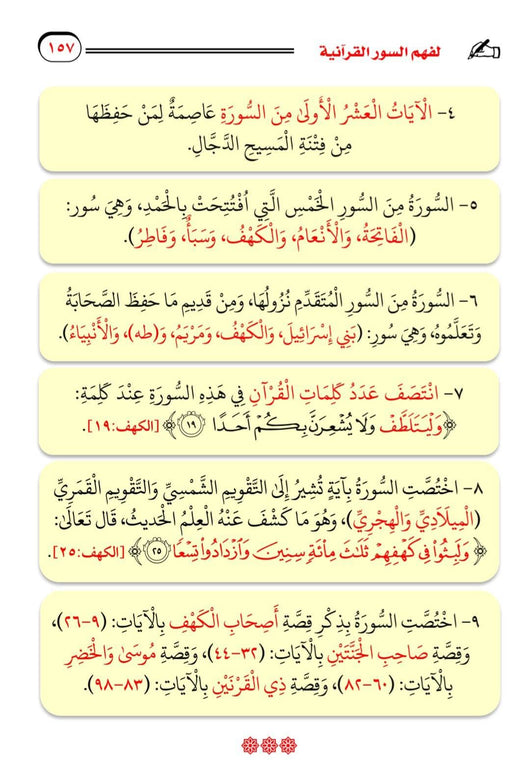 لفهم السور القرآنية
١٥٧
٤- الْآيَاتُ الْعَشْرُ الْأُولَىٰ مِنَ السُّورَةِ عَاصِمَةٌ لِمَنْ حَفِظَهَا
مِنْ فِتْنَةِ الْمَسِيحِ الدَّجَّالِ.
٥- السُّورَةُ مِنَ السُّورِ الْخَمْسِ الَّتِي افْتُتِحَتْ بِالْحَمْدِ، وَهِيَ سُور:
(الْفَاتِحَةُ، وَالْأَنْعَامُ، وَالْكَهْفُ، وَسَبَأٌ، وَفَاطِرُ).
٦- السُّورَةُ مِنَ السُّورِ الْمُتَقَدِّمِ نُزُولُهَا، وَمِنْ قَدِيمِ مَا حَفِظَ الصَّحَابَةُ
وَتَعَلَّمُوهُ، وَهِيَ سُورِ: (بَنِي إِسْرَائِيلَ، وَالْكَهْفُ، وَمَرْيَمُ، وَ(طه)، وَالْأَنْبِيَاءُ).
٧- انْتَصَفَ عَدَدُ كَلِمَاتِ الْقُرْآنِ فِي هَذِهِ السُّورَةِ عِنْدَ كَلِمَةِ:
﴿وَلْيَتَلَطَّفْ وَلَا يُشْعِرَنَّ بِكُمْ أَحَدًا ١٩﴾ [الكهف:١٩].
٨- اخْتُصَّتِ السُّورَةُ بِآيَةٍ تُشِيرُ إِلَى التَّقْوِيمِ الشَّمْسِيِّ وَالتَّقْوِيمِ الْقَمَرِيِّ
(الْمِيلَادِيِّ وَالْهِجْرِيِّ)، وَهُوَ مَا كَشَفَ عَنْهُ الْعِلْمُ الْحَدِيثُ، قَالَ تَعَالَىٰ:
﴿وَلَبِثُوا۟ فِى كَهْفِهِمْ ثَلَٰثَ مِا۟ئَةٍ سِنِينَ وَٱزْدَادُوا۟ تِسْعًا ٢٥﴾ [الكهف:٢٥].
٩- اخْتُصَّتِ السُّورَةُ بِذِكْرِ قِصَّةِ أَصْحَابِ الْكَهْفِ بِالْآيَاتِ: (٩-٢٦)،
وَقِصَّةِ صَاحِبِ الْجَنَّتَيْنِ بِالْآيَاتِ: (٣٢-٤٤)، وَقِصَّةِ مُوسَىٰ وَالْخَضِرِ
بِالْآيَاتِ: (٦٠-٨٢)، وَقِصَّةِ ذِي الْقَرْنَيْنِ بِالْآيَاتِ: (٨٣-٩٨).